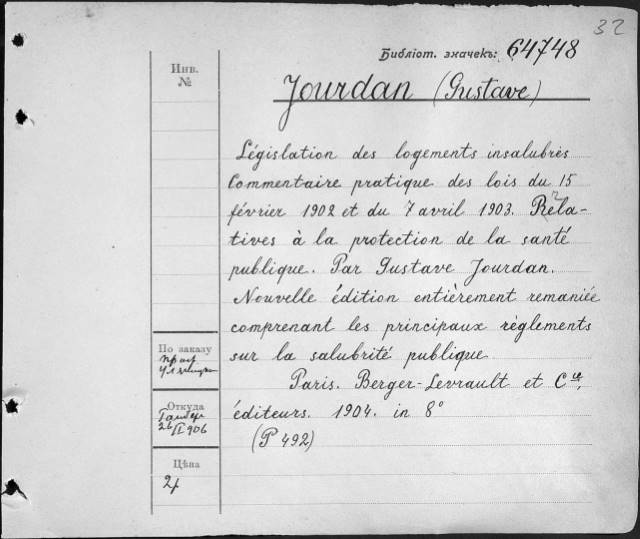 32
Библіот. значекъ: 64748
Инв.
№
Jourdan (Gustave)
Législation des logements insalubres
Commentaire pratique des lois du 15
février 1902 et du 7 avril 1903. Rela-
tives à la protection de la santé
publique. Par Gustave Jourdan.
Nouvelle édition entièrement remaniée
comprenant les principaux règlements
sur la salubrité publique
Paris. Berger-Levrault et Cie,
éditeurs. 1904. in 8°
(P 492)
По заказу
Откуда
26 II 906
Цѣна